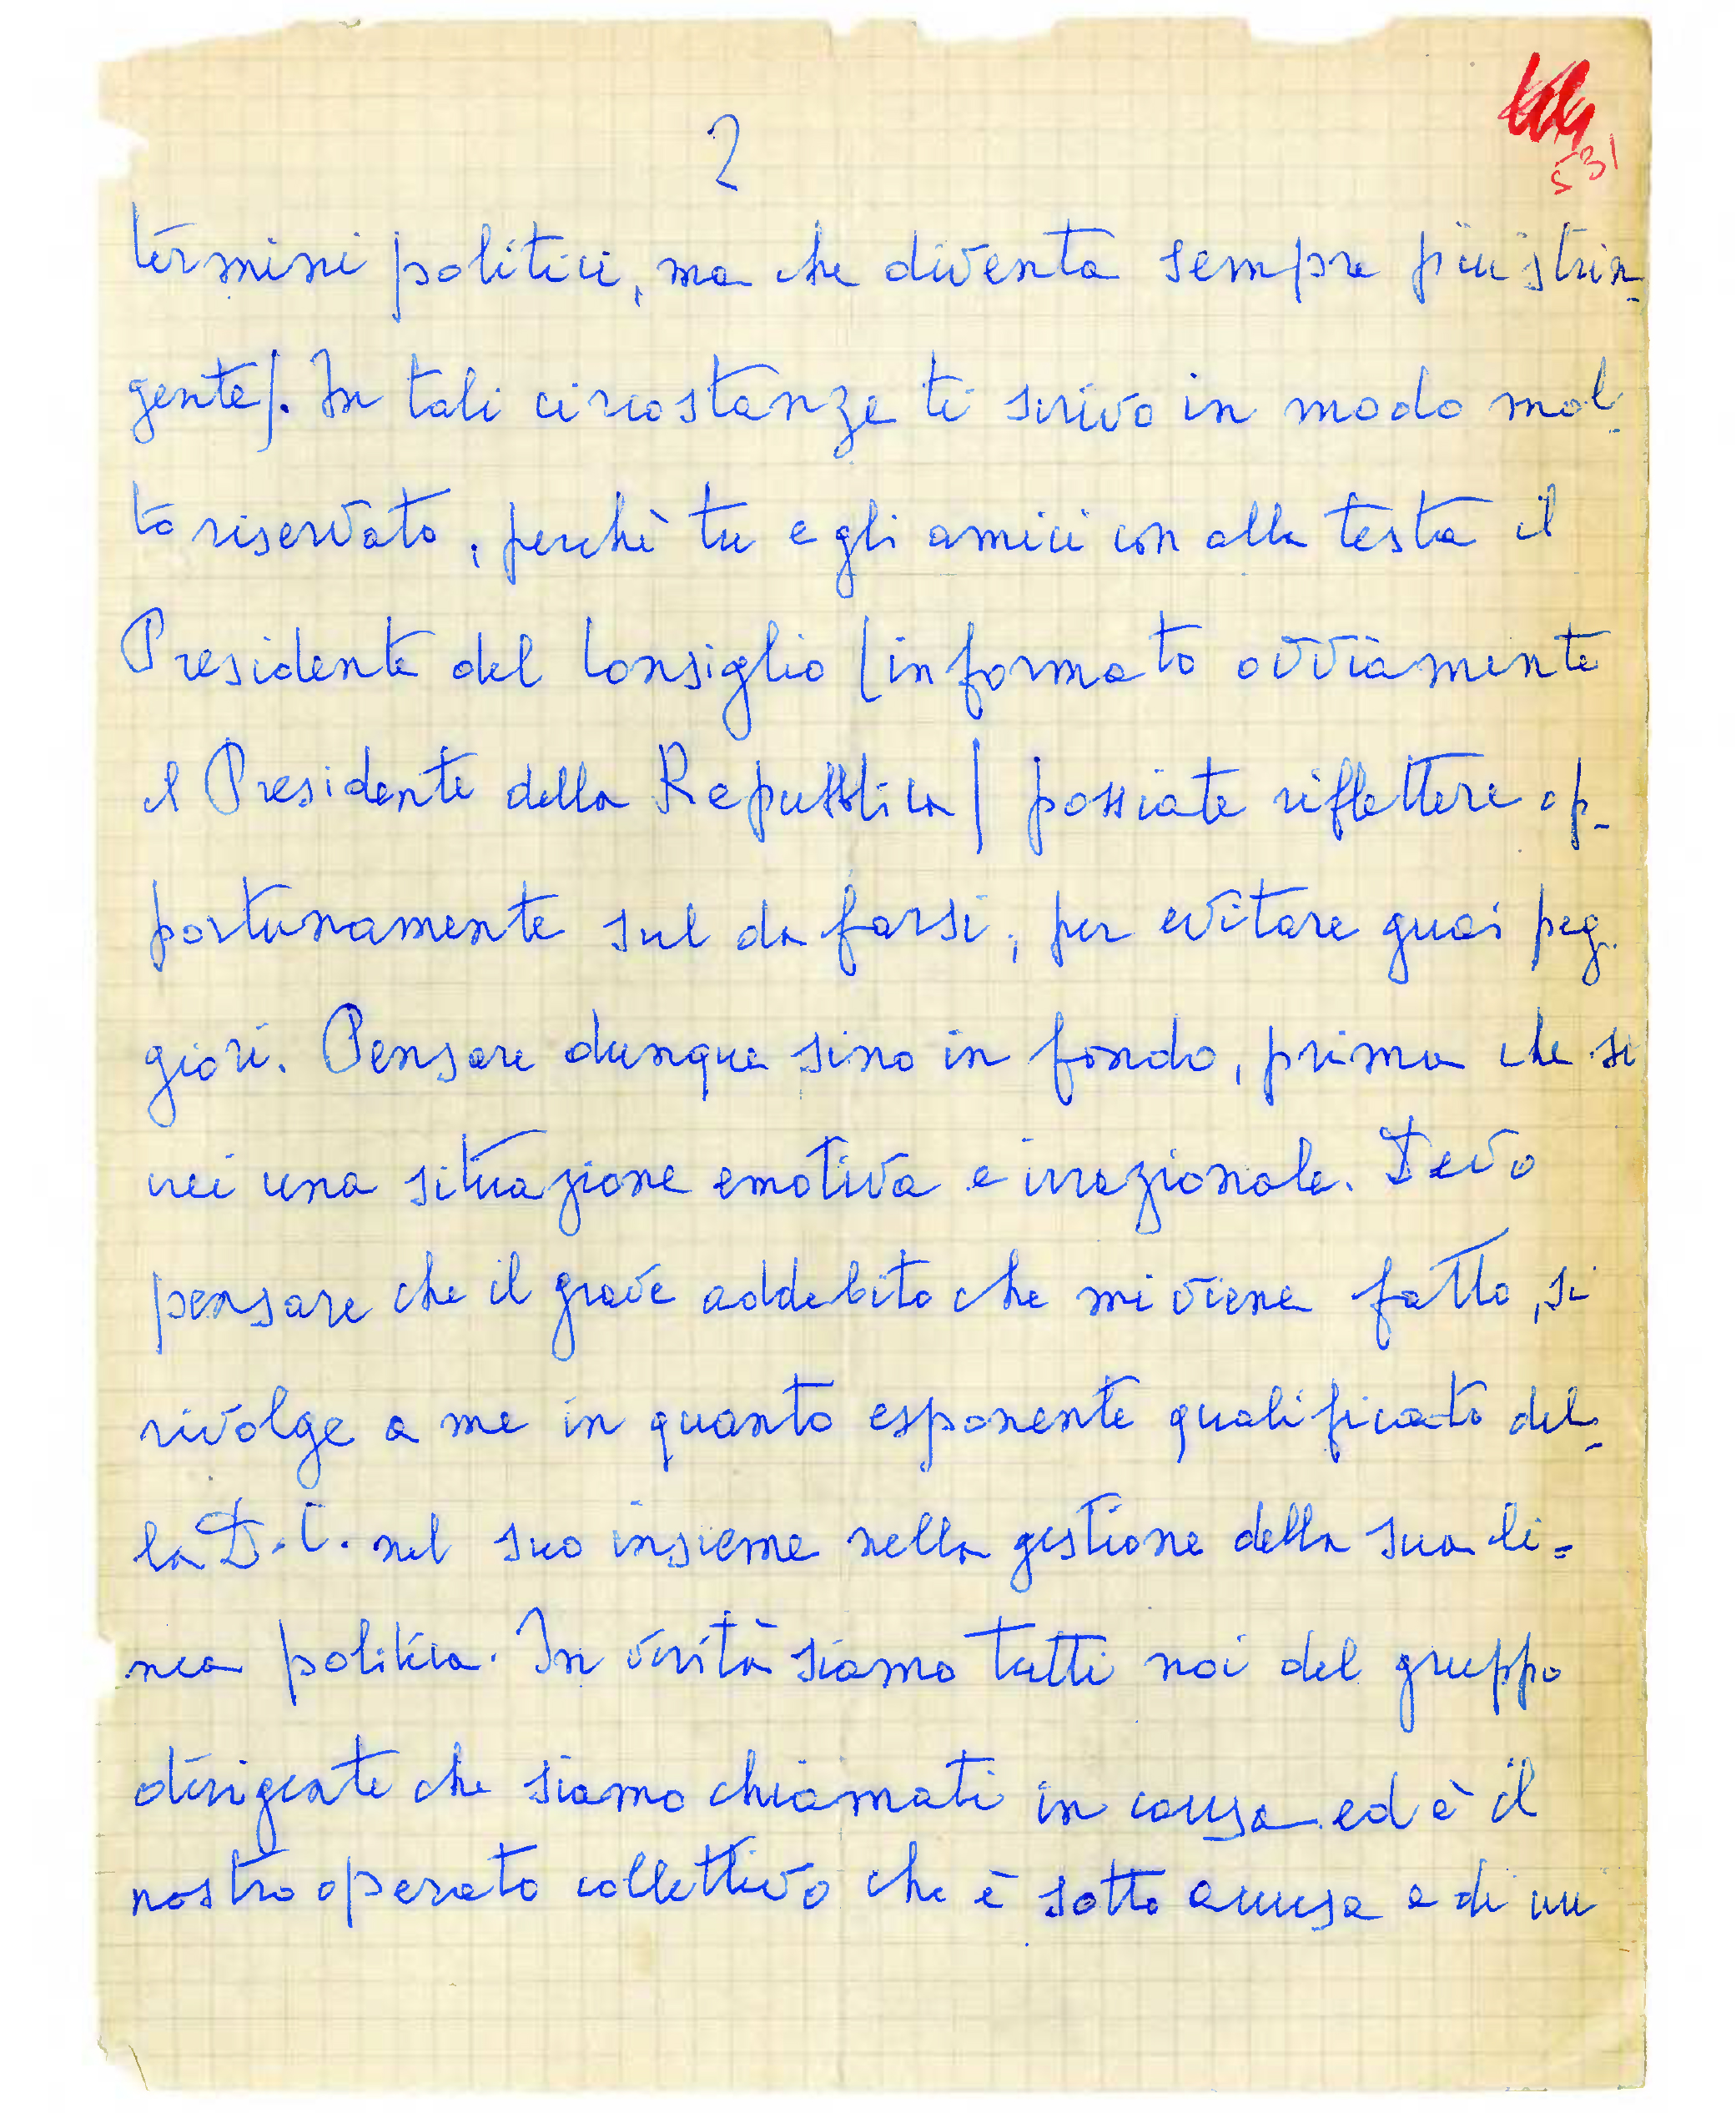 2
531
termini politici, ma che diventa sempre più strin-
gente/. In tali circostanze ti scrivo in modo mol-
to riservato, perchè tu e gli amici con alla testa il
Presidente del Consiglio /informato ovviamente
il Presidente della Repubblica/ possiate riflettere op-
portunamente sul da farsi, per evitare guai peg-
giori. Pensare dunque sino in fondo, prima che si
crei una situazione emotiva e irrazionale. Devo
pensare che il grave addebito che mi viene fatto, si
rivolge a me in quanto esponente qualificato del-
la D.C. nel suo insieme nella gestione della sua li=
nea politica. In verità siamo tutti noi del gruppo
dirigente che siamo chiamati in causa ed è il
nostro operato collettivo che è sotto accusa e di cui